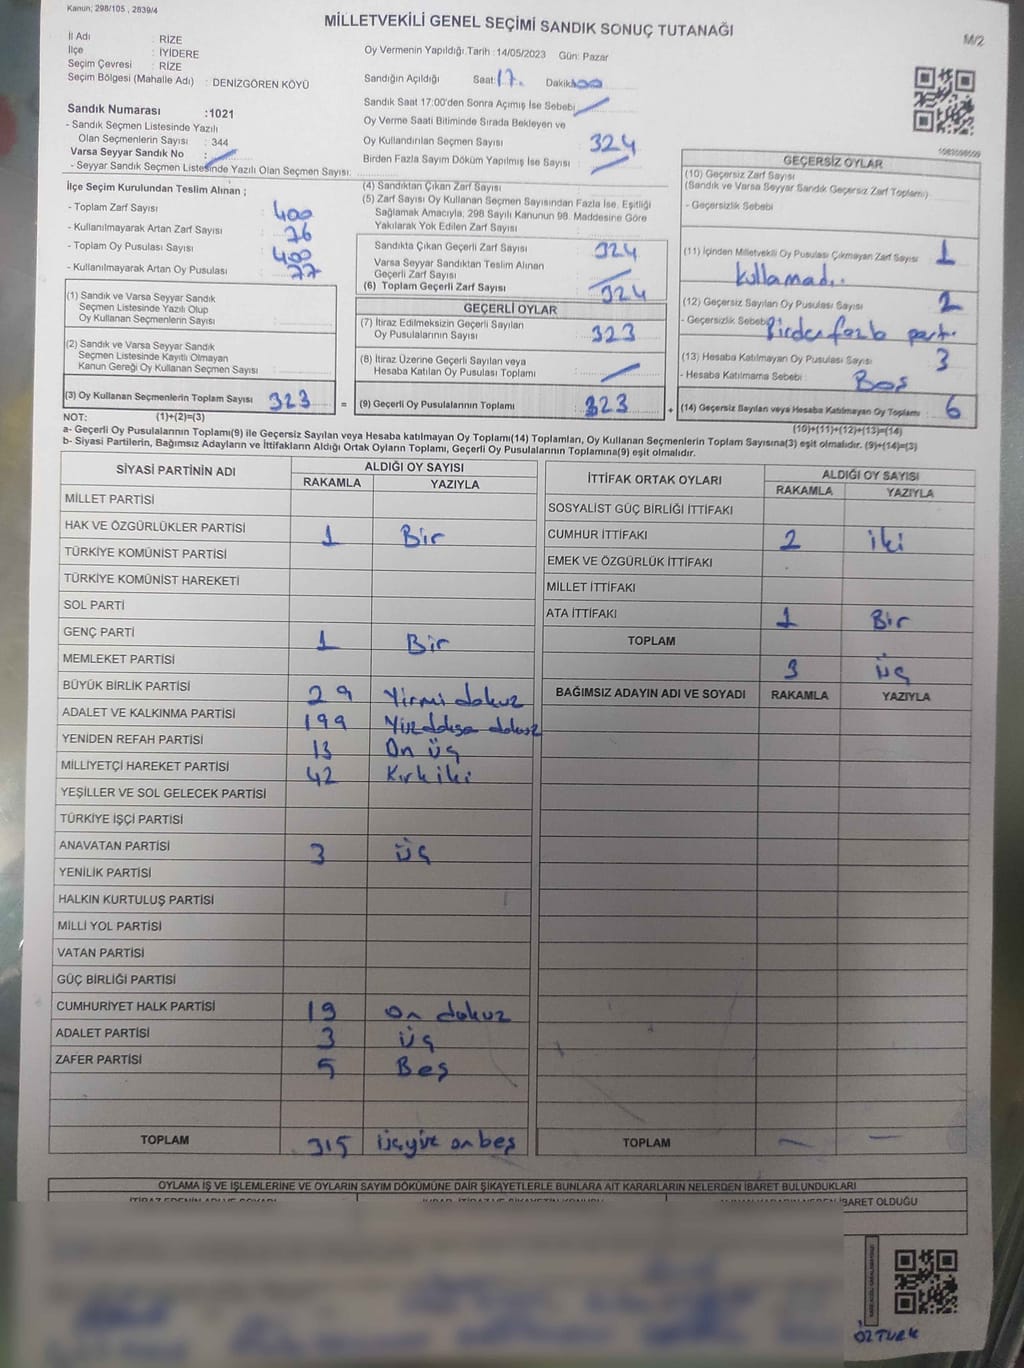 Kanun; 298/105 , 2839/4
MİLLETVEKİLİ GENEL SEÇİMİ SANDIK SONUÇ TUTANAĞI
M/2
İl Adı : RİZE
İlçe : İYİDERE
Seçim Çevresi : RİZE
Seçim Bölgesi (Mahalle Adı) : DENİZGÖREN KÖYÜ
Oy Vermenin Yapıldığı Tarih : 14/05/2023 Gün: Pazar
Sandığın Açıldığı Saat: 17. Dakika: 00
Sandık Saat 17:00'den Sonra Açımış İse Sebebi
Oy Verme Saati Bitiminde Sırada Bekleyen ve
Oy Kullandırılan Seçmen Sayısı 324
Birden Fazla Sayım Döküm Yapılmış İse Sayısı :
Sandık Numarası :1021
- Sandık Seçmen Listesinde Yazılı
Olan Seçmenlerin Sayısı : 344
Varsa Seyyar Sandık No :
- Seyyar Sandık Seçmen Listesinde Yazılı Olan Seçmen Sayısı:
İlçe Seçim Kurulundan Teslim Alınan ;
- Toplam Zarf Sayısı : 400
- Kullanılmayarak Artan Zarf Sayısı : 76
- Toplam Oy Pusulası Sayısı : 400
- Kullanılmayarak Artan Oy Pusulası : 77
(1) Sandık ve Varsa Seyyar Sandık
Seçmen Listesinde Yazılı Olup
Oy Kullanan Seçmenlerin Sayısı :
(2) Sandık ve Varsa Seyyar Sandık
Seçmen Listesinde Kayıtlı Olmayan
Kanun Gereği Oy Kullanan Seçmen Sayısı :
(3) Oy Kullanan Seçmenlerin Toplam Sayısı 323 =
(4) Sandıktan Çıkan Zarf Sayısı :
(5) Zarf Sayısı Oy Kullanan Seçmen Sayısından Fazla İse, Eşitliği
Sağlamak Amacıyla, 298 Sayılı Kanunun 98. Maddesine Göre
Yakılarak Yok Edilen Zarf Sayısı :
Sandıkta Çıkan Geçerli Zarf Sayısı 324
Varsa Seyyar Sandıktan Teslim Alınan
Geçerli Zarf Sayısı
(6) Toplam Geçerli Zarf Sayısı : 324
GEÇERLİ OYLAR
(7) İtiraz Edilmeksizin Geçerli Sayılan
Oy Pusulalarının Sayısı : 323
(8) İtiraz Üzerine Geçerli Sayılan veya
Hesaba Katılan Oy Pusulası Toplamı :
(9) Geçerli Oy Pusulalarının Toplamı : 323 +
GEÇERSİZ OYLAR
(10) Geçersiz Zarf Sayısı
(Sandık ve Varsa Seyyar Sandık Geçersiz Zarf Toplamı)
- Geçersizlik Sebebi
(11) İçinden Milletvekili Oy Pusulası Çıkmayan Zarf Sayısı 1
kullamadı.
(12) Geçersiz Sayılan Oy Pusulası Sayısı 2
- Geçersizlik Sebebi: Birden fazla parti.
(13) Hesaba Katılmayan Oy Pusulası Sayısı 3
- Hesaba Katılmama Sebebi : Boş
(14) Geçersiz Sayılan veya Hesaba Katılmayan Oy Toplamı : 6
NOT: (1)+(2)=(3)
(10)+(11)+(12)+(13)=(14)
a- Geçerli Oy Pusulalarının Toplamı(9) ile Geçersiz Sayılan veya Hesaba katılmayan Oy Toplamı(14) Toplamları, Oy Kullanan Seçmenlerin Toplam Sayısına(3) eşit olmalıdır. (9)+(14)=(3)
b- Siyasi Partilerin, Bağımsız Adayların ve İttifakların Aldığı Ortak Oyların Toplamı, Geçerli Oy Pusulalarının Toplamına(9) eşit olmalıdır.
SİYASİ PARTİNİN ADI ALDIĞI OY SAYISI
RAKAMLA YAZIYLA
MİLLET PARTİSİ
HAK VE ÖZGÜRLÜKLER PARTİSİ 1 Bir
TÜRKİYE KOMÜNİST PARTİSİ
TÜRKİYE KOMÜNİST HAREKETİ
SOL PARTİ
GENÇ PARTİ 1 Bir
MEMLEKET PARTİSİ
BÜYÜK BİRLİK PARTİSİ 29 Yirmi dokuz
ADALET VE KALKINMA PARTİSİ 199
YENİDEN REFAH PARTİSİ 13 On üç
MİLLİYETÇİ HAREKET PARTİSİ 42 Kırk iki
YEŞİLLER VE SOL GELECEK PARTİSİ
TÜRKİYE İŞÇİ PARTİSİ
ANAVATAN PARTİSİ 3 üç
YENİLİK PARTİSİ
HALKIN KURTULUŞ PARTİSİ
MİLLİ YOL PARTİSİ
VATAN PARTİSİ
GÜÇ BİRLİĞİ PARTİSİ
CUMHURİYET HALK PARTİSİ 19 on dokuz
ADALET PARTİSİ 3 üç
ZAFER PARTİSİ 5 Beş
TOPLAM 315 üçyüz on beş
İTTİFAK ORTAK OYLARI ALDIĞI OY SAYISI
RAKAMLA YAZIYLA
SOSYALİST GÜÇ BİRLİĞİ İTTİFAKI
CUMHUR İTTİFAKI 2 iki
EMEK VE ÖZGÜRLÜK İTTİFAKI
MİLLET İTTİFAKI
ATA İTTİFAKI 1 Bir
TOPLAM
3 üç
BAĞIMSIZ ADAYIN ADI VE SOYADI RAKAMLA YAZIYLA
TOPLAM — —
OYLAMA İŞ VE İŞLEMLERİNE VE OYLARIN SAYIM DÖKÜMÜNE DAİR ŞİKAYETLERLE BUNLARA AİT KARARLARIN NELERDEN İBARET BULUNDUKLARI
İBARET OLDUĞU
ÖZTURK